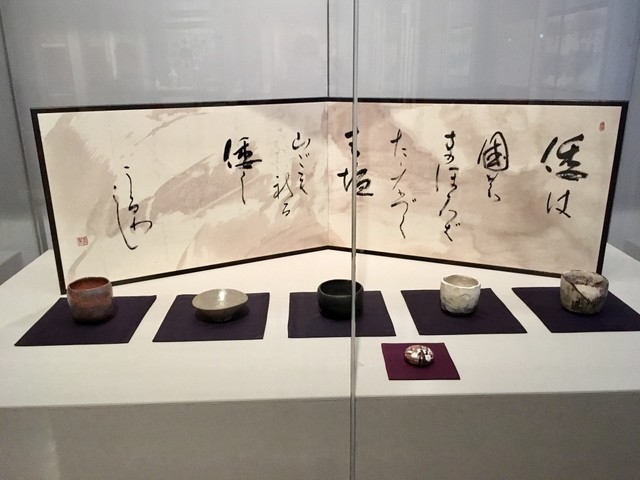 倭は
國の
まほろば
たたなづく
青垣
山ごも
れる
倭し
うるわし